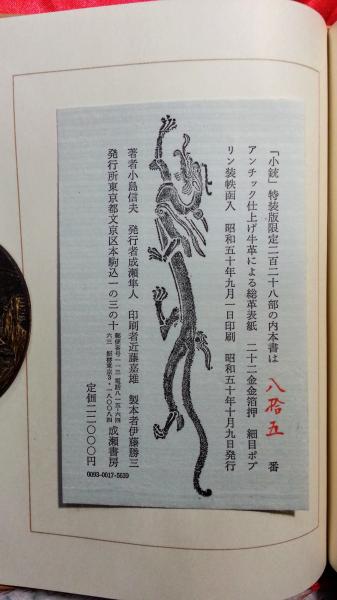 「小銃」特装版限定二百二十八部の内本書は 八拾五 番
アンチック仕上げ牛革による総革表紙 二十二金金箔押 細目ポプ
リン装帙函入 昭和五十年九月一日印刷 昭和五十年十月九日発行
著者小島信夫 発行者成瀬隼人 印刷者近藤嘉雄 製本者伊藤勝三
発行所東京都文京区本駒込一の三の十
郵便番号一一三 電話八一五・六四
六三 振替東京
成瀬書房
定価二二〇〇〇円
0093-0017-5639